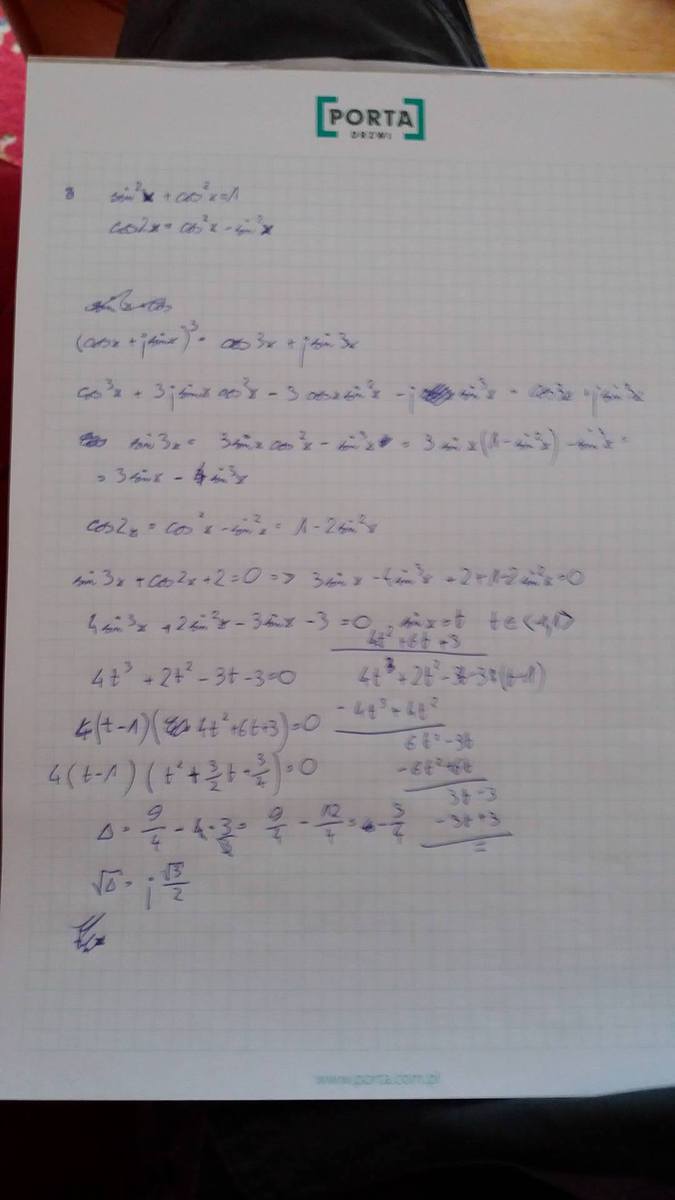 PORTA
DRZWI
sin²x + cos²x = 1
cos2x = cos²x - sin²x
(cosx + jsinx)³ = cos3x + jsin3x
cos³x + 3jsinx cos²x - 3cosxsin²x - j sin³x = cos3x + jsin3x
sin3x = 3sinx cos²x - sin³x = 3sinx(1-sin²x) - sin³x =
= 3sinx - 4sin³x
cos2x = cos²x - sin²x = 1 - 2sin²x
sin3x + cos2x + 2 = 0 => 3sinx - 4sin³x + 2 + 1 - 2sin²x = 0
4sin³x + 2sin²x - 3sinx - 3 = 0 sinx = t t∈
4t² + 6t + 3
4t³ + 2t² - 3t - 3 = 0 4t³ + 2t² - 3t - 3 : (t-1)
- 4t³ + 4t²
4(t-1)( 4t² + 6t + 3) = 0
6t² - 3t
4(t-1)(t² + 3/2 t + 3/4) = 0
- 6t² + 6t
3t - 3
Δ = 9/4 - 4 · 3/4 = 9/4 - 12/4 = - 3/4
- 3t + 3
=
√Δ = j √3/2
www.porta.com.pl